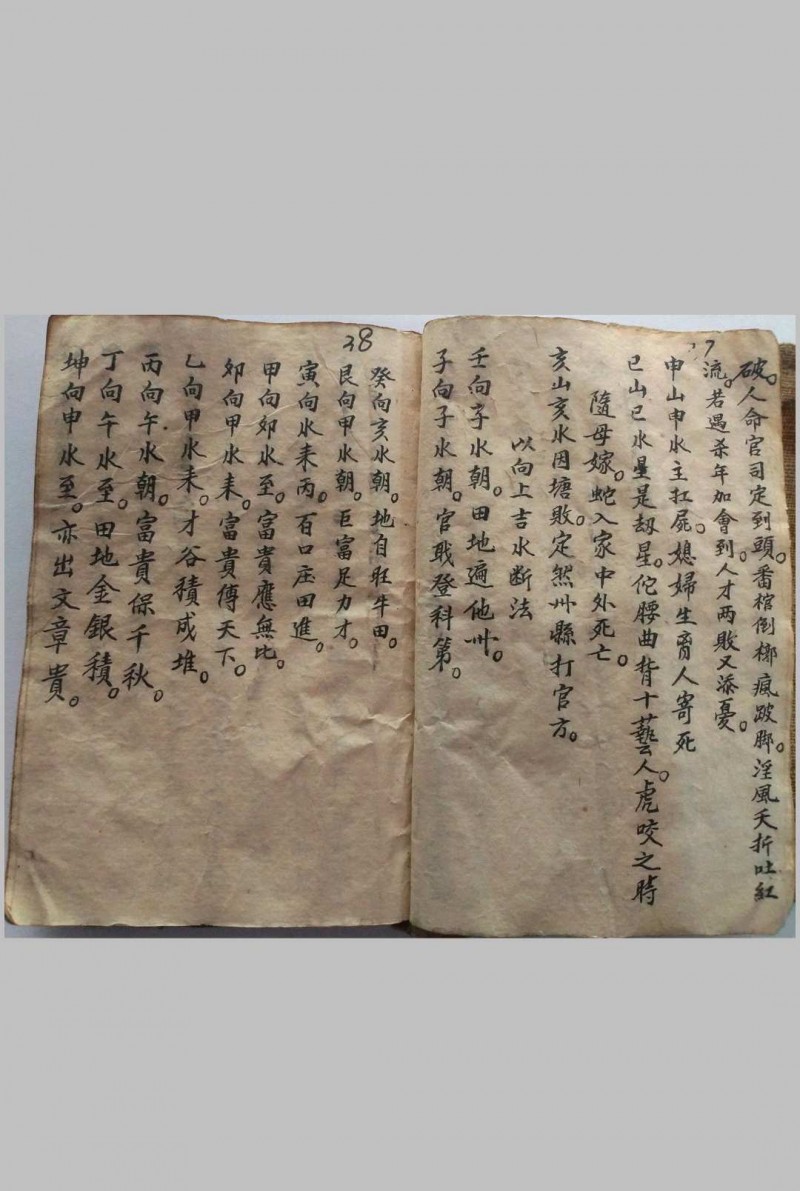 37
破。人命官司定到頭。番棺倒槨瘋跛脚。淫風夭折吐紅
流。若遇杀年加會到。人才两敗又添憂。
申山申水主扛屍。媳婦生育人寄死
巳山巳水星是刼星。佗腰曲背十藝人。虎咬之時
隨母嫁。蛇入家中外死亡。
亥山亥水因塘敗。定然州縣打官方。
以向上吉水断法
壬向子水朝。田地遍他州。
子向子水朝。官戝登科第。
38
癸向亥水朝。地自旺牛田。
艮向甲水朝。巨富足力才。
寅向水耒丙。百口庄田進。
甲向夘水至。富貴應無比。
夘向甲水耒。富貴傳天下。
乙向甲水耒。才谷積成堆。
丙向午水朝。富貴保千秋。
丁向午水至。田地金銀積。
坤向申水至。亦出文章貴。